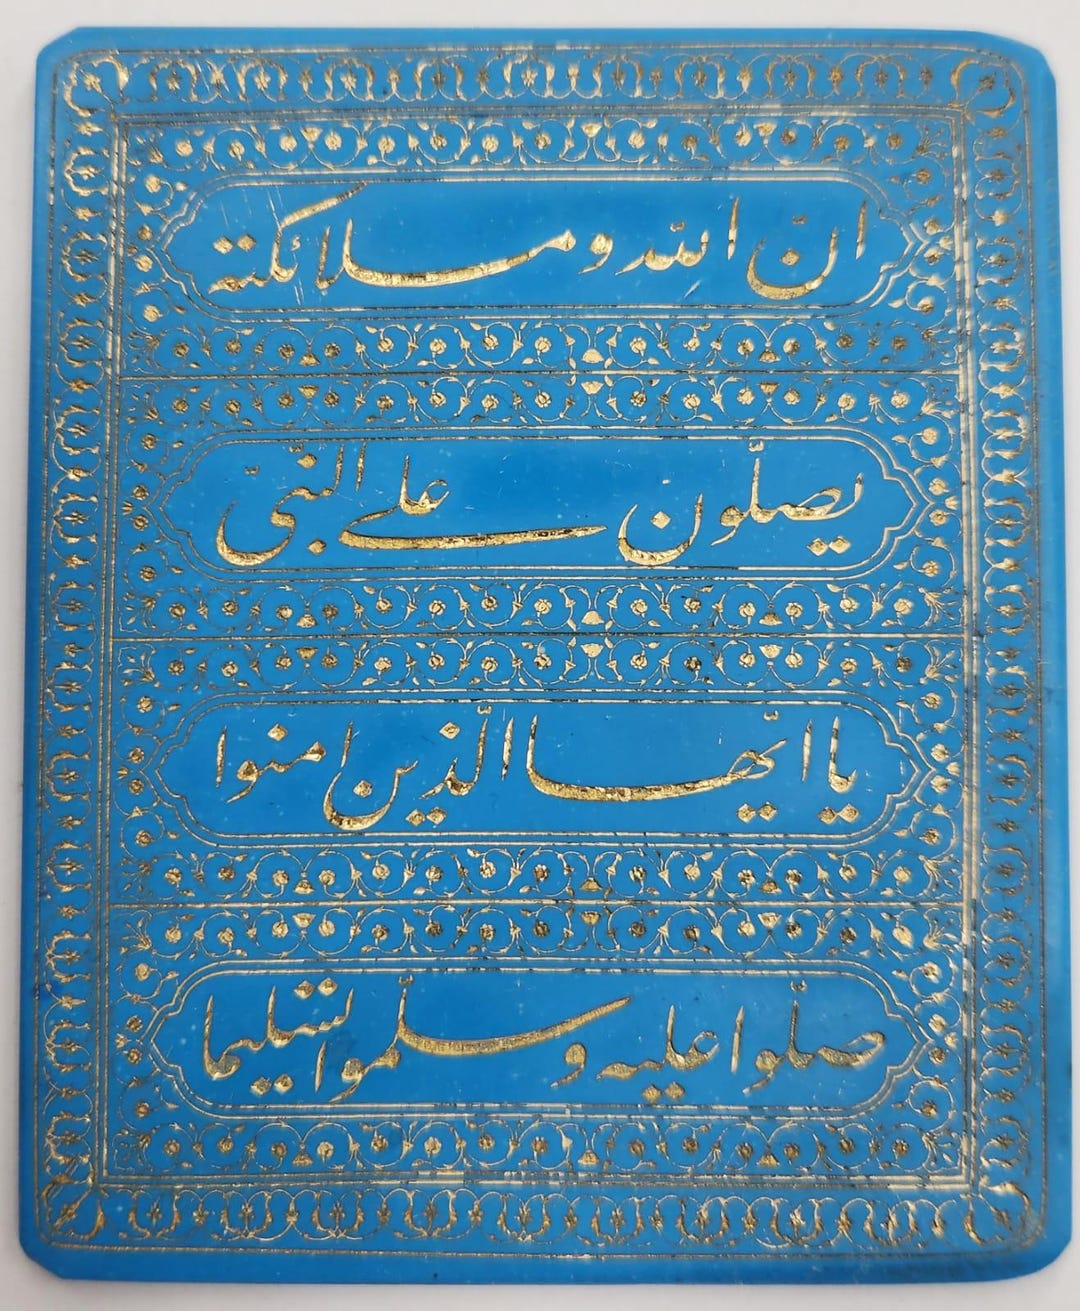 انّ الله وملائكته
يصلّون علی النّبیّ
يا ايّها الّذين امنوا
صلّوا عليه و سلّموا تسليما